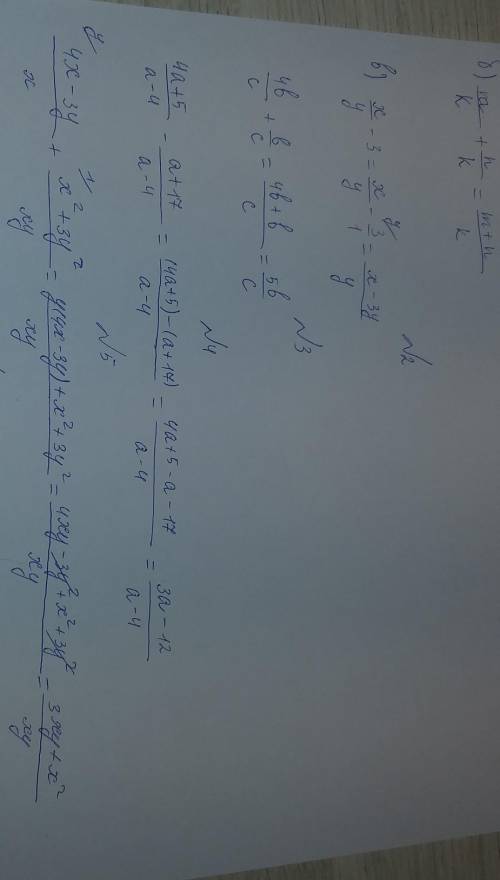 б) m/k + n/k = m+n/k
№2
в) x/y - 3 = x/y - 3/1 = x-3y/y
№3
4b/c + b/c = 4b+b/c = 5b/c
№4
4a+5/a-4 - a+17/a-4 = (4a+5)-(a+17)/a-4 = 4a+5-a-17/a-4 = 3a-12/a-4
№5
4x-3y/x + x²+3y²/xy = y(4x-3y)+x²+3y²/xy = 4xy-3y²+x²+3y²/xy = 3xy+x²/xy